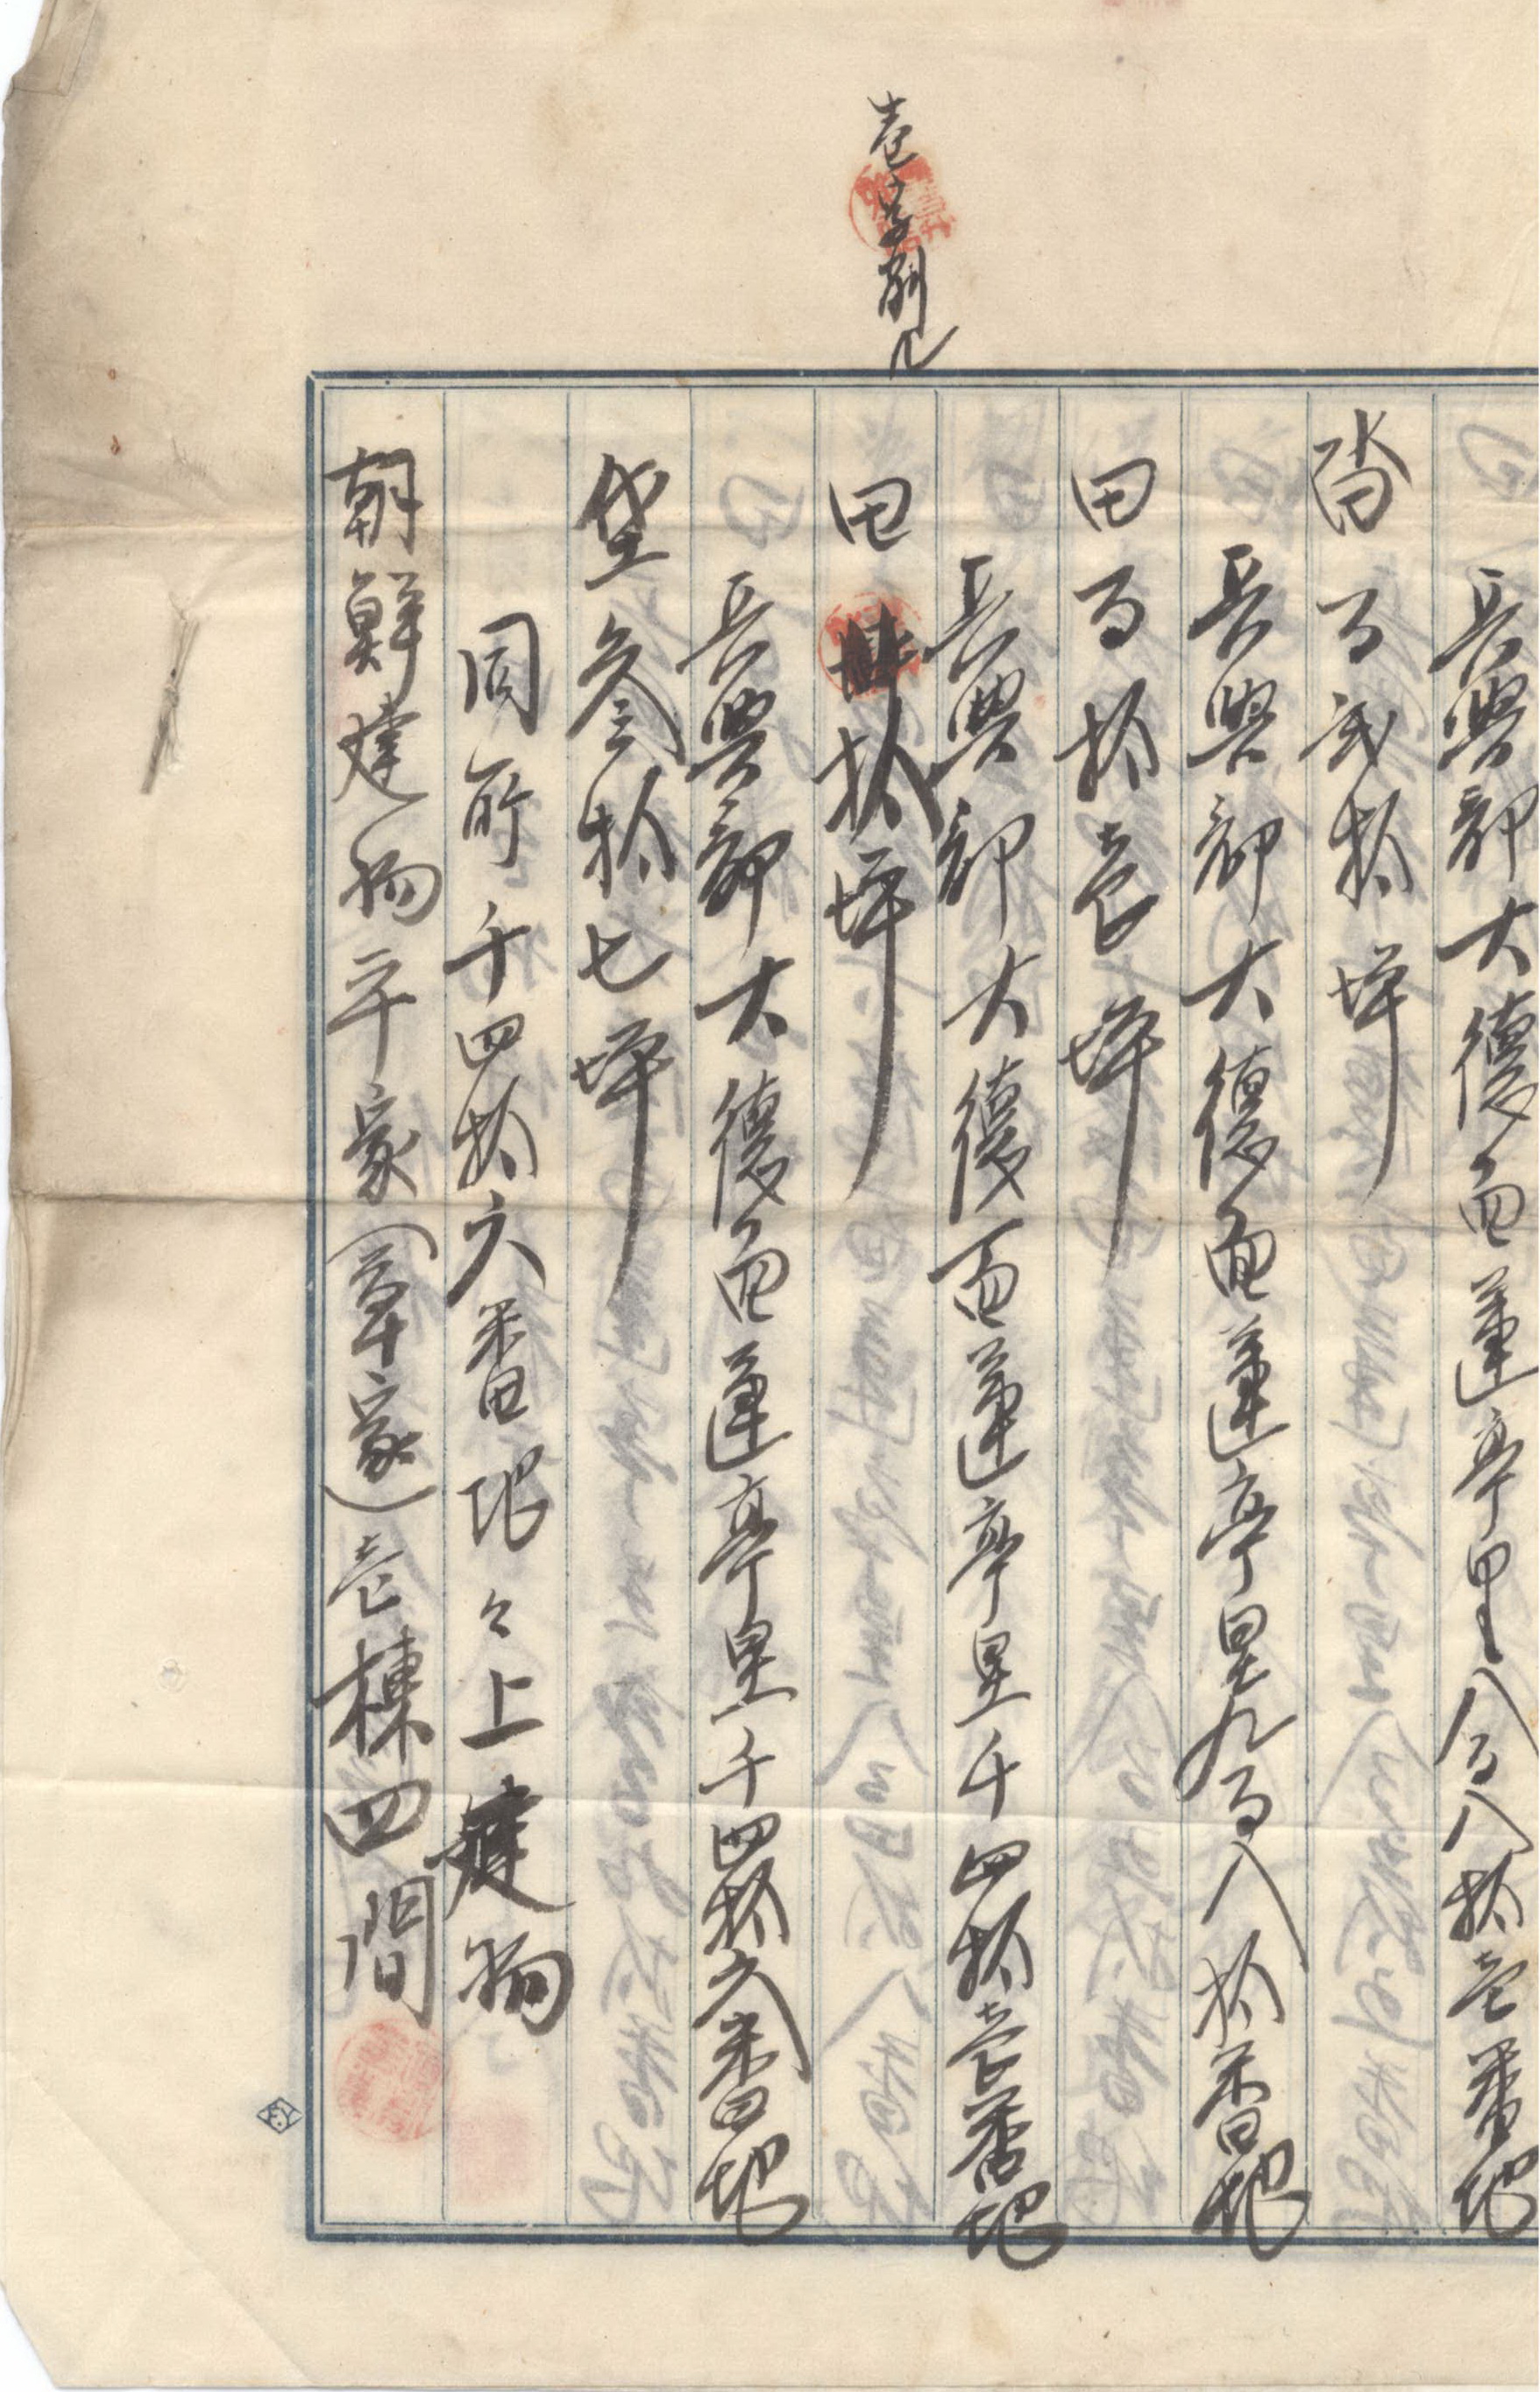 壱字削ル
長興郡大德面蓮亭里八百八拾壱番地
畓百弍拾坪
長興郡大德面蓮亭里九百八拾番地
田百拾壱坪
長興郡大德面蓮亭里千四拾壱番地
田拾坪
長興郡大德面蓮亭里千四拾六番地
垈叁拾七坪
同所千四拾六番地々上建物
朝鮮建物平家(草家)壱棟四間